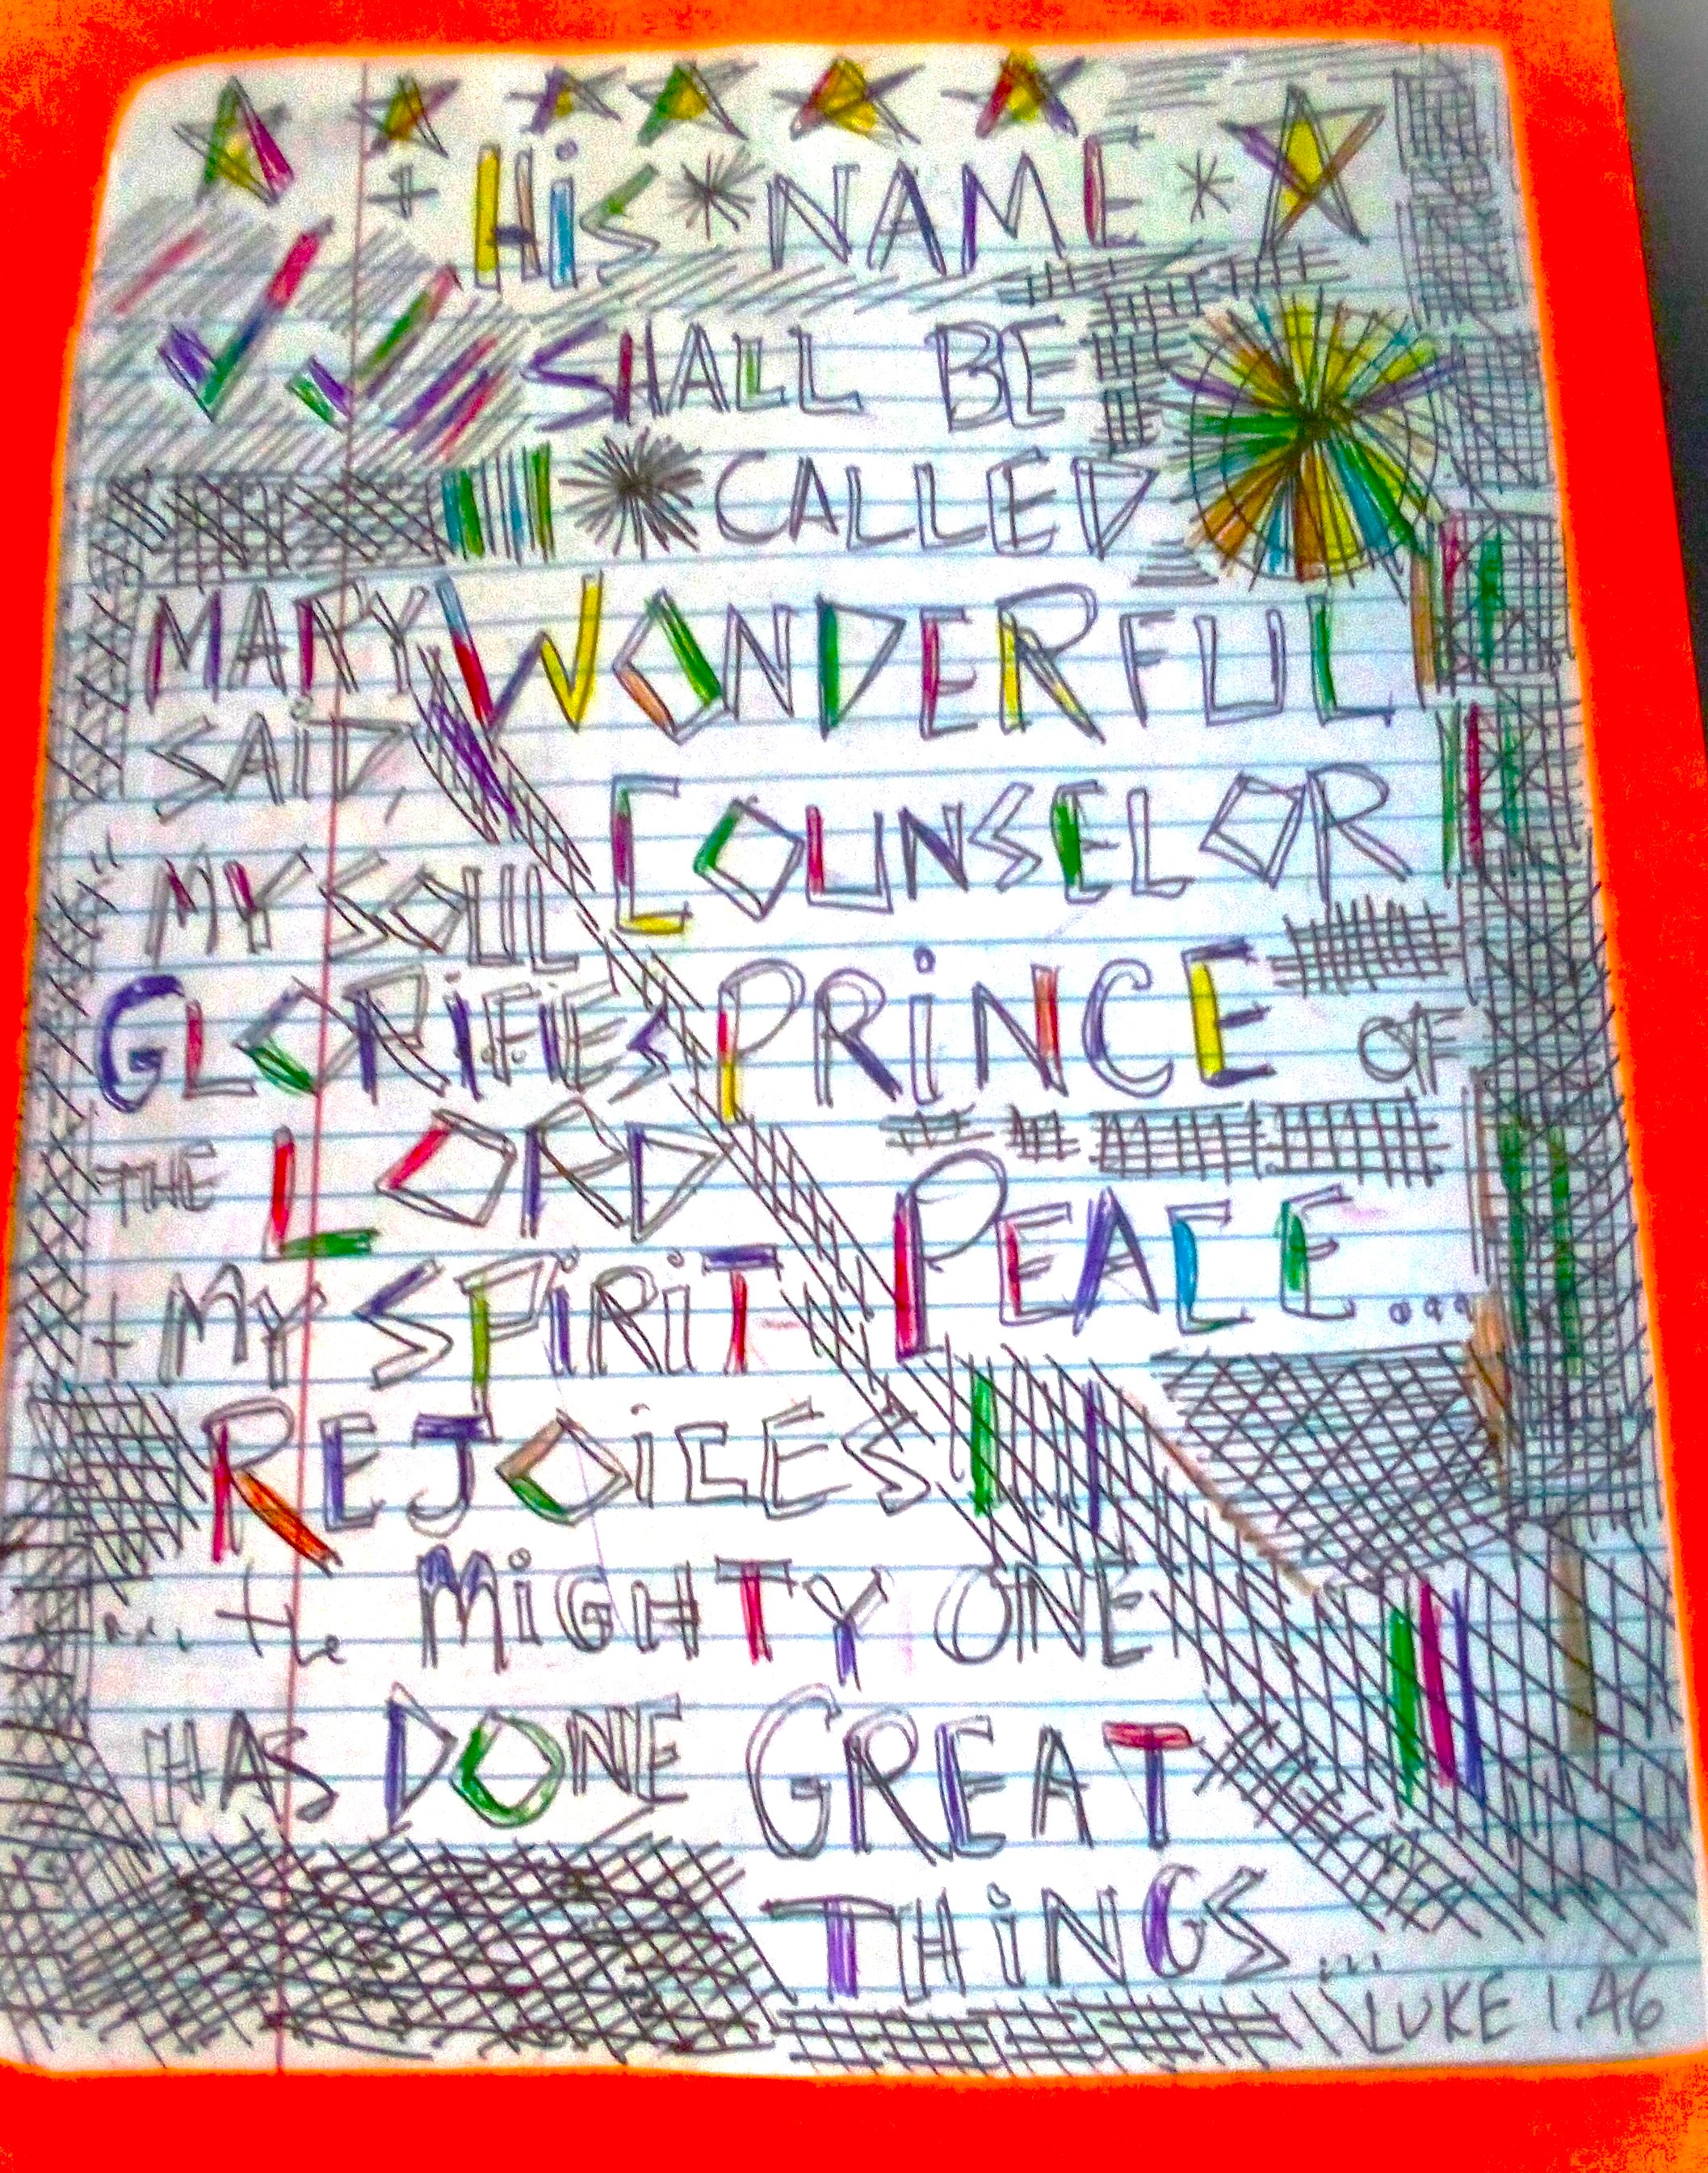 + HiS * NAME *
SHALL BE
CALLED
WONDERFUL
COUNSELOR
PRiNCE OF
PEACE...
MARY
SAiD,
"MY SOUL
GLORiFiES
THE LORD
+ MY SPiRiT
REJOiCES
... the MiGHTY ONE
HAS DONE GREAT
THiNGS...
LUKE 1.46